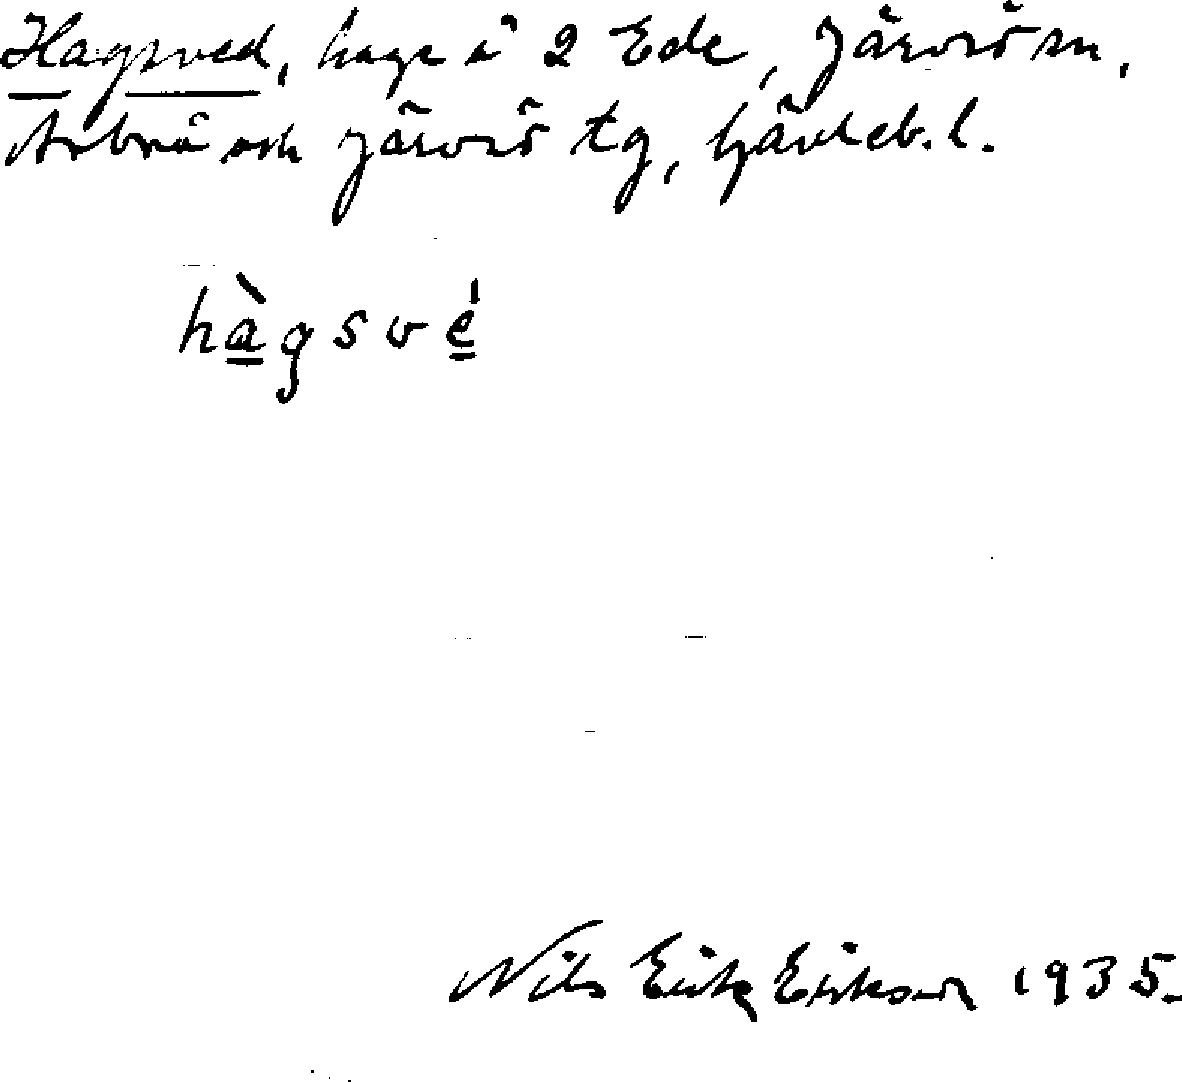 Hagsved, hage å 2 Ede, Järvsö sn,
Arbrå och Järvsö tg, Gävleb. l.
hàgsvé
Nils Erik Erikson 1935.